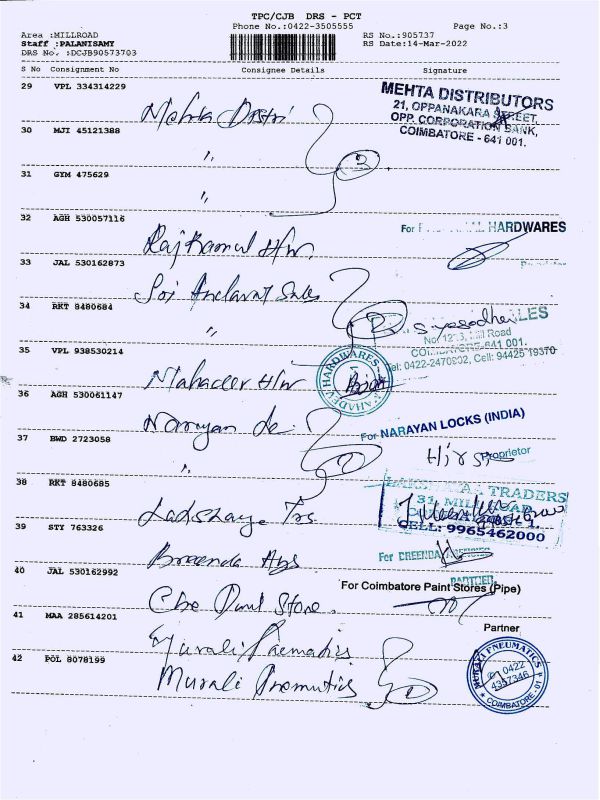 TPC/CJB DRS - PCT
Phone No.:0422-3505555 Page No.:3
Area :MILLROAD RS No.:905737
Staff :PALANISAMY RS Date:14-Mar-2022
DRS No. :DCJB90573703
S No Consignment No Consignee Details Signature
29 VPL 334314229
Mehta Distri
MEHTA DISTRIBUTORS
21, OPPANAKARA STREET,
OPP. CORPORATION BANK,
COIMBATORE - 641 001.
30 MJI 45121388
"
31 GYM 475629
"
32 AGH 530057116
Raj Kamal H/w
For HARDWARES
Proprietor
33 JAL 530162873
Sales
34 RKT 8480684
"
LES
Mill Road
641 001.
Tel: 0422-2470902, Cell: 94425 19370
35 VPL 938530214
Mahadev H/w
MAHADEV HARDWARES
36 AGH 530061147
Narayan
For NARAYAN LOCKS (INDIA)
Proprietor
37 BWD 2723058
"
38 RKT 8480685
TRADERS
CELL: 9965462000
39 STY 763326
For
PARTNER
40 JAL 530162992
Cbe Paint Store.
For Coimbatore Paint Stores (Pipe)
Partner
41 MAA 285614201
Murali
42 POL 8078199
Murali
MURALI PNEUMATICS
0422
4357346
COIMBATORE - 01